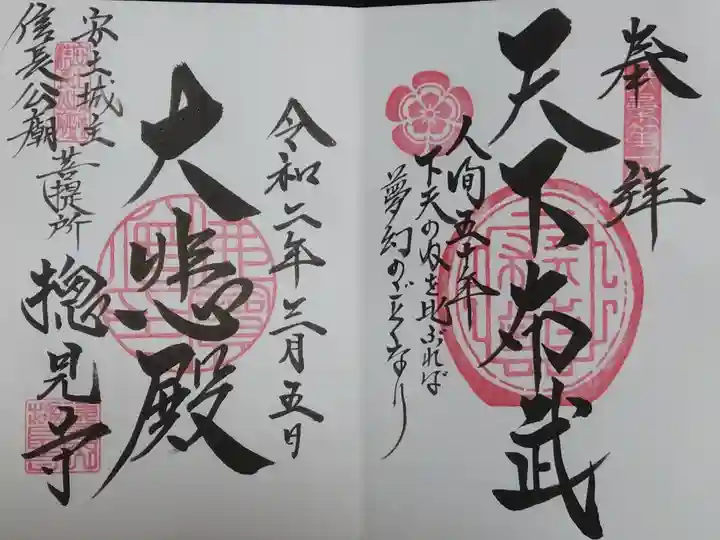 奉拝
天下布武
人间五十年
下天の内を比ぶれば
夢幻のごとくなり
令和二年三月五日
大悲殿
安土城主
信長公廟
菩提所
摠見寺